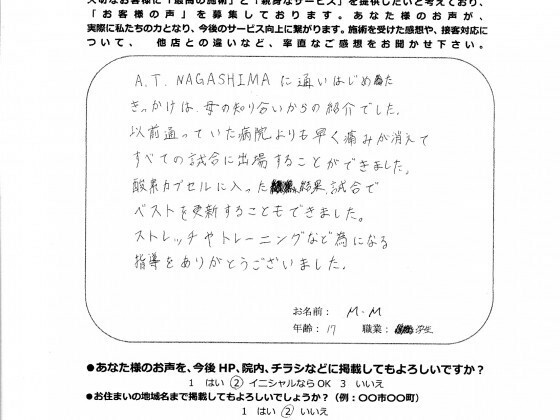 大切なお客様に「最高の施術」と「親身なサービス」を提供したいと考えており、
「お客様の声」を募集しております。あなた様のお声が、
実際に私たちの力となり、今後のサービス向上に繋がります。施術を受けた感想や、接客対応に
ついて、 他店との違いなど、率直なご感想をお聞かせ下さい。
A.T. NAGASHIMAに通いはじめた
きっかけは、母の知り合いからの紹介でした。
以前通っていた病院よりも早く痛みが消えて
すべての試合に出場することができました。
酸素カプセルに入った 結果、試合で
ベストを更新することもできました。
ストレッチやトレーニングなど為になる
指導をありがとうございました。
お名前： M.M
年齢：17 職業： 学生
●あなた様のお声を、今後 HP、院内、チラシなどに掲載してもよろしいですか？
1 はい ② イニシャルなら OK 3 いいえ
●お住まいの地域名まで掲載してもよろしいでしょうか？（例：〇〇市〇〇町）
1 はい ② いいえ